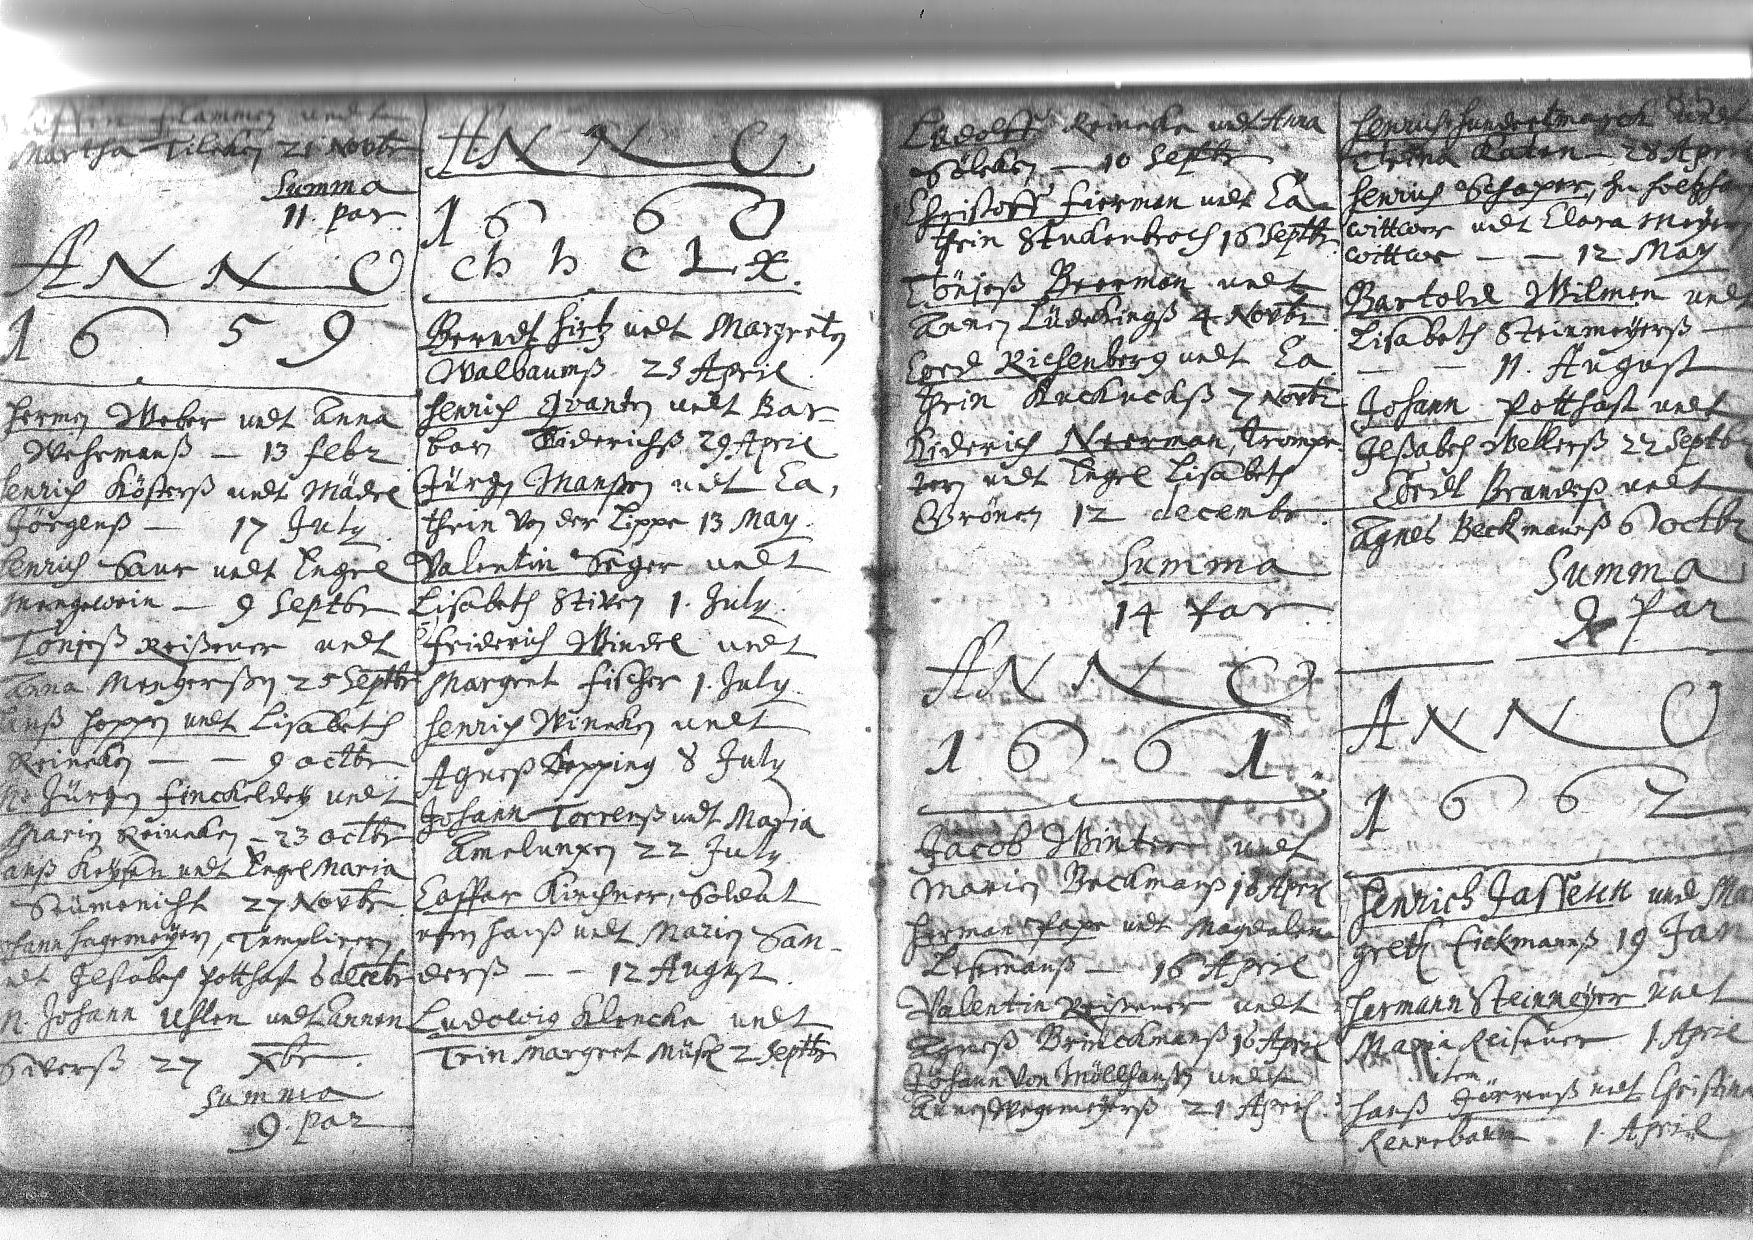 Flammen undt
Martha Tileken 21 Novbr
Summa
11. par.
ANNO
1659
Hermen Weber undt Anna
Wehrmanß — 13 febr
Henrich Kösterß undt Mädel
Jörgenß — 17 July
Henrich Saur undt Engel
Mengewein — 9 Septbr
Tönjeß Reißener undt
Anna Mengerßen 25 Septbr
Hanß Hoppen undt Lisabeth
Reineken — — 9 octbr
Jürgen Finckeldey undt
Marien Reineken — 23 octbr
Hanß Keysen undt Engel Maria
Stümenicht 27 Novbr
Johann Hagemeyer, Templirern
undt Ilsabeh Potthast 8 decebr
Johann Uhlen undt Annen
Siverß 27 Xbr
Summa
9. par
ANNO
1660
Berndt Hirtz undt Margreten
Walbaumß 25 April
Henrich Quanten undt Bar-
bar Diderichß 29 April
Jürgen Manßen undt Ca,
thrin Von der Lippe 13 May
Valentin Seger undt
Lisabeth Stiven 1. July
Friderich Windel undt
Margret Fischer 1. July
Henrich Wineken undt
Agneß Kopping 8 July
Johann Torrenß undt Maria
Amelunxen 22 July
Caspar Kirchner, Soldat
undt Marien San-
derß — — 12 August
Ludowig Klencke undt
Trin Margret Müsel 2 Septbr
Ludolff Reineke undt Anna
Söleken — 10 Septbr
Christoff Fierman undt Ca-
thrin Stukenbroch 16 Septbr
Tönjeß Beerman undt
Annen Lüdekingß 4 Novbr
Cord Richenberg undt Ca
thrin Kuckuckß 7 Novbr
Diderich Neerman, Trompe-
tern undt Engel Lisabeth
Grönen 12 decembr.
Summa
14 Par
ANNO
1661.
Jacob Winter undt
Marien Beckmanß 16 April
Herman Pape undt Magdalena
16 April
Valentin Reißener undt
Agneß Brinckmanß 16 April
Johann Von Möllhausen undt
Annen Wegemeyerß 21 April
85
Henrich Hundertmarck undt
Trina Katen — 28 April
Henrich Schaper, Zu
wittwer undt Clara Meyers
wittwe — — 12 May
Bartold Wilmen undt
Lisabeth Steinmeyerß —
— — 11. August
Johann Potthast undt
Ilßabeh Wellerß 22 Septb
Cordt Brandeß undt
Agnes Beckmanß 6 octbr
Summa
9 Par
ANNO
1662
Henrich Jassenn und Mar
greth Fickmannß 19 Jan
Hermann Steinmeyer undt
Maria Reisener 1 April
item
Hanß Törrenß undt Christina
Rennebaum 1. April